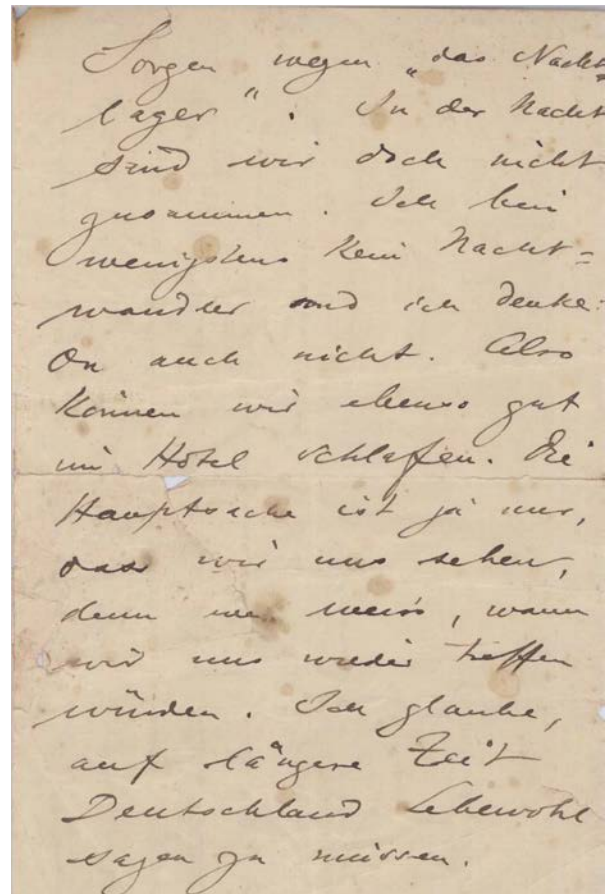 Sorgen wegen „das Nacht=
lager“. In der Nacht
sind wir doch nicht
zusammen. Ich bin
wenigstens kein Nacht=
wandler und ich denke:
Du auch nicht. Also
können wir ebenso gut
im Hotel schlafen. Die
Hauptsache ist ja nur,
dass wir uns sehen,
denn wer weiss, wann
wir uns wieder treffen
würden. Ich glaube,
auf längere Zeit
Deutschland Lebewohl
sagen zu müssen.